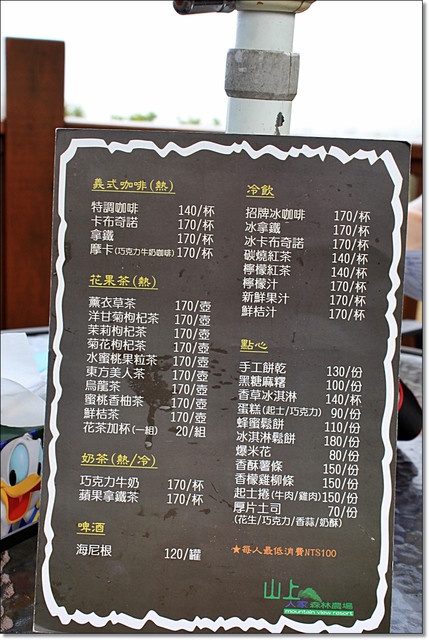 義式咖啡(熱)
特調咖啡 140/杯
卡布奇諾 170/杯
拿鐵 170/杯
摩卡(巧克力牛奶咖啡) 170/杯
花果茶(熱)
薰衣草茶 170/壺
洋甘菊枸杞茶 170/壺
茉莉枸杞茶 170/壺
菊花枸杞茶 170/壺
水蜜桃果粒茶 170/壺
東方美人茶 170/壺
烏龍茶 170/壺
蜜桃香柚茶 170/壺
鮮桔茶 170/壺
花茶加杯(一組) 20/組
奶茶(熱/冷)
巧克力牛奶 170/杯
蘋果拿鐵茶 170/杯
啤酒
海尼根 120/罐
冷飲
招牌冰咖啡 170/杯
冰拿鐵 170/杯
冰卡布奇諾 170/杯
碳燒紅茶 140/杯
檸檬紅茶 140/杯
檸檬汁 170/杯
新鮮果汁 170/杯
鮮桔汁 170/杯
點心
手工餅乾 130/份
黑糖麻糬 100/份
香草冰淇淋 140/杯
蛋糕(起士/巧克力) 90/份
蜂蜜鬆餅 110/份
冰淇淋鬆餅 180/份
爆米花 80/份
香酥薯條 150/份
香檬雞柳條 150/份
起士捲(牛肉/雞肉) 150/份
厚片土司 70/份
(花生/巧克力/香蒜/奶酥)
★每人最低消費NT$100
山上
人家森林農場
mountain view resort